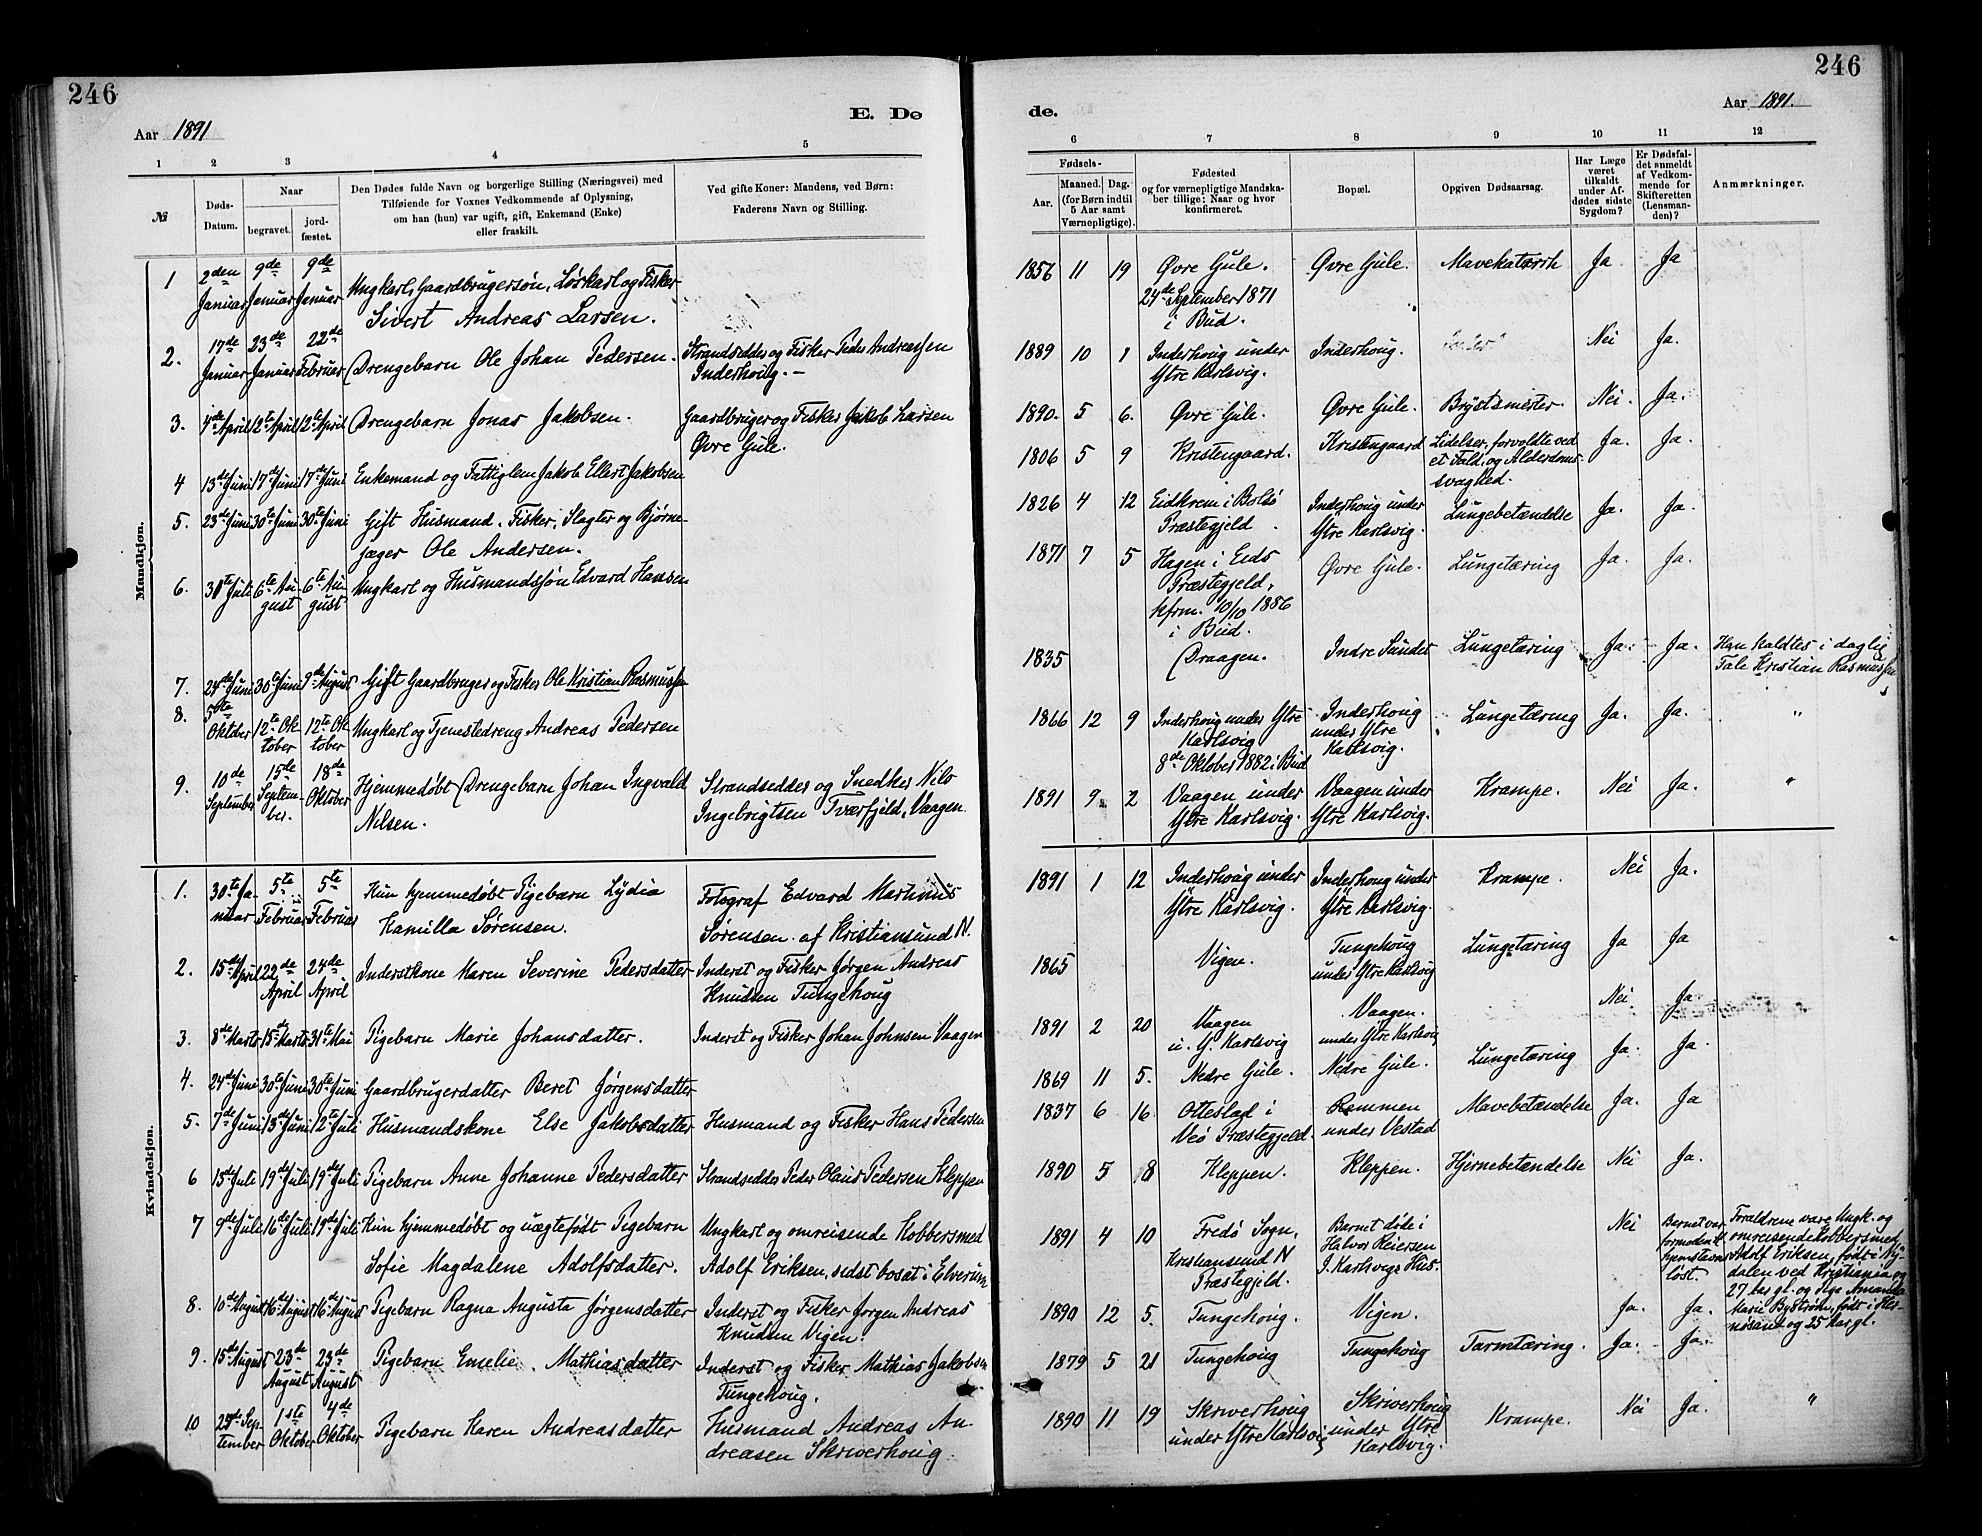 246
246
E. Dø
de.
Aar 1891
Aar 1891.
1
2
3
4
5
6
7
8
9
10
11
12
№
Døds-
Datum.
Naar
begravet.
jord-
fæstet.
Den Dødes fulde Navn og borgerlige Stilling (Næringsvei) med
Tilføiende for Voxnes Vedkommende af Oplysning,
om han (hun) var ugift, gift, Enkemand (Enke)
eller fraskilt.
Ved gifte Koner: Mandens, ved Børn:
Faderens Navn og Stilling.
Fødsels-
Aar.
Maaned. Dag.
(for Børn indtil
5 Aar samt
Værnepligtige).
Fødested
og for værnepligtige Mandska-
ber tillige: Naar og hvor
konfirmeret.
Bopæl.
Opgiven Dødsaarsag.
Har Læge
været
tilkaldt
under Af-
dødes sidste
Sygdom?
Er Dødsfal-
det anmeldt
af Vedkom-
mende for
Skifteretten
(Lensman-
den)?
Anmærkninger.
Mandkjøn.
1 2den Januar 9de Januar 9de Januar Ungkarl, Gaardbrugersøn, Løskarl og Fisker
Sivert Andreas Larsen.
1856 11 19 Øvre Gule. Øvre Gule. Mavekatarrh Ja Ja
24de September 1871
i Bud.
2. 17de Januar 23de Januar 22de Februar Drengebarn Ole Johan Pedersen. Strandsedder og Fisker Peder Andreassen
Inderhoug. –
1889 10 1 Inderhoug under Inderhoug. Nei Ja.
Ytre Karlsvig.
3. 4de April 12te April 12te April Drengebarn Jonas Jakobsen. Gaardbruger og Fisker Jakob Larsen
Øvre Gule.
1890. 5 6. Øvre Gule. Øvre Gule. Brystsmerter. Nei. Ja.
4 13de Juni 17de Juni 17de Juni Enkemand og Fattiglem Jakob Ellert Jakobsen
1806 5 9 Kristengaard. Kristengaard Lidelser, forvoldte ved Ja. Ja.
et Fald. og Alderdoms-
svaghed.
5. 23de Juni 30te Juni 30te Juni Gift Husmand. Fisker, Slagter og Bjørne-
jæger Ole Andersen.
1826 4 12 Eidkrem i Bolsø Inderhoug under Lungebetændelse Ja. Ja.
Præstegjeld. Ytre Karlsvig.
6. 31te Juli 6te August 6te August Ungkarl og Husmandssøn Edvard Hansen
1871 7 5 Hagen i Eids Øvre Gule. Lungetæring Ja. Ja.
Præstegjeld,
kfrm. 10/10 1886
i Bud.
7. 24de Juni 30te Juni 9de August Gift Gaardbruger og Fisker Ole Kristian Rasmussen
1835 Draagen. Indre Sunder Lungetæring Ja. Ja. Han kaldtes i daglig
Tale Kristian Rasmussen
8. 5te Oktober 12te Oktober 12te Oktober Ungkarl og Tjenestedreng Andreas Pedersen
1866 12 9 Inderhoug under Ytre Inderhoug Lungetæring Ja. Ja. "
Karlsvig under Ytre
8de Oktober 1882 i Bud Karlsvig.
9. 10de September 15de September. 18de Oktober Hjemmedøbt Drengebarn Johan Ingvald Strandsedder og Snedker Nils
Nilsen. Ingebrigtsen Tværfjeld, Vaagen.
1891 9. 2 Vaagen under Vaagen under Krampe. Nei Ja. "
Ytre Karlsvig. Ytre Karlsvig.
Kvindekjøn.
1. 30te Januar 5te Februar 5te Februar Kun hjemmedøbt Pigebarn Lydia Fotograf Edvard Martinus
Kamilla Sørensen. Sørensen. af Kristiansund N.
1891 1 12 Inderhoug under Inderhoug under Krampe. Nei Ja.
Ytre Karlsvig. Ytre Karlsvig.
2. 15de April 22de April 24de April Inderstkone Maren Severine Pedersdatter Inderst og Fisker Jørgen Andreas
Knudsen Tungehoug
1865 Vigen. Tungehoug Lungetæring Ja Ja
under Ytre Karlsvig
3. 8de Marts 15de Marts 31te Mai Pigebarn Marie Johansdatter. Inderst og Fisker Johan Johnsen Vaagen
1891 2 20 Vaagen Vaagen. Nei Ja
u. Y. Karlsvig under Ytre Karlsvig
4. 24de Juni 30te Juni 30te Juni Gaardbrugerdatter Beret Jørgensdatter
1869 11 5. Nedre Gule. Nedre Gule. Lungetæring Ja. Ja.
5. 7de Juni 13de Juni 12te Juli Husmandskone Else Jakobsdatter Husmand og Fisker Hans Pedersen
1837 6 16 Otteslad i Rommen Mavebetændelse Ja. Ja
Veø Præstegjeld. under Vestad
6 15de Juli 19de Juli 19de Juli Pigebarn Anne Johanne Pedersdatter Strandsedder Peder Olaus Pedersen Kleppen
1890 5 8 Kleppen. Kleppen. Hjernebetændelse Nei Ja.
7 9de Juli 16de Juli 19de Juli Kun hjemmedøbt og uægtefødt Pigebarn Ungkarl og omreisende Kobbersmed
Sofie Magdalene Adolfsdatter. Adolf Eriksen, sidst bosat i Elverum
1891 4 10 Fredø Sogn, Barnet døde i Nei Barnet var Forældrene vare Ungk. og
Kristiansund N Halvor Reiersen formodentl. omreisende Kobbersmed
Præstegjeld. I. Karlsvigs Hus. hjemstavns- Adolf Eriksen, født i Ny-
løst. dalen ved Kristiania og
27 Aar gl. og Olga Amanda
Marie Byström, født i Her-
nösand og 25 Aar gl.
8. 10de August 16de August 16de August Pigebarn Ragna Augusta Jørgensdatter Inderst og Fisker Jørgen Andreas
Knudsen Vigen.
1890 12 5. Tungehoug. Vigen. Ja. Ja.
9. 15de August 23de August 23de August Pigebarn Emelie. Mathiasdatter Inderst og Fisker Mathias Jakobsen
Tungehoug.
1879 5 21 Tungehoug Tungehoug Tarmtæring. Ja. Ja.
10 25de September 1ste Oktober 4de Oktober Pigebarn Karen Andreasdatter Husmand Andreas An-
dreasen Skriverhoug.
1890 11 19 Skriverhoug Skriverhoug Krampe. Nei Ja. "
under Ytre Karlsvig under Ytre
Karlsvig.